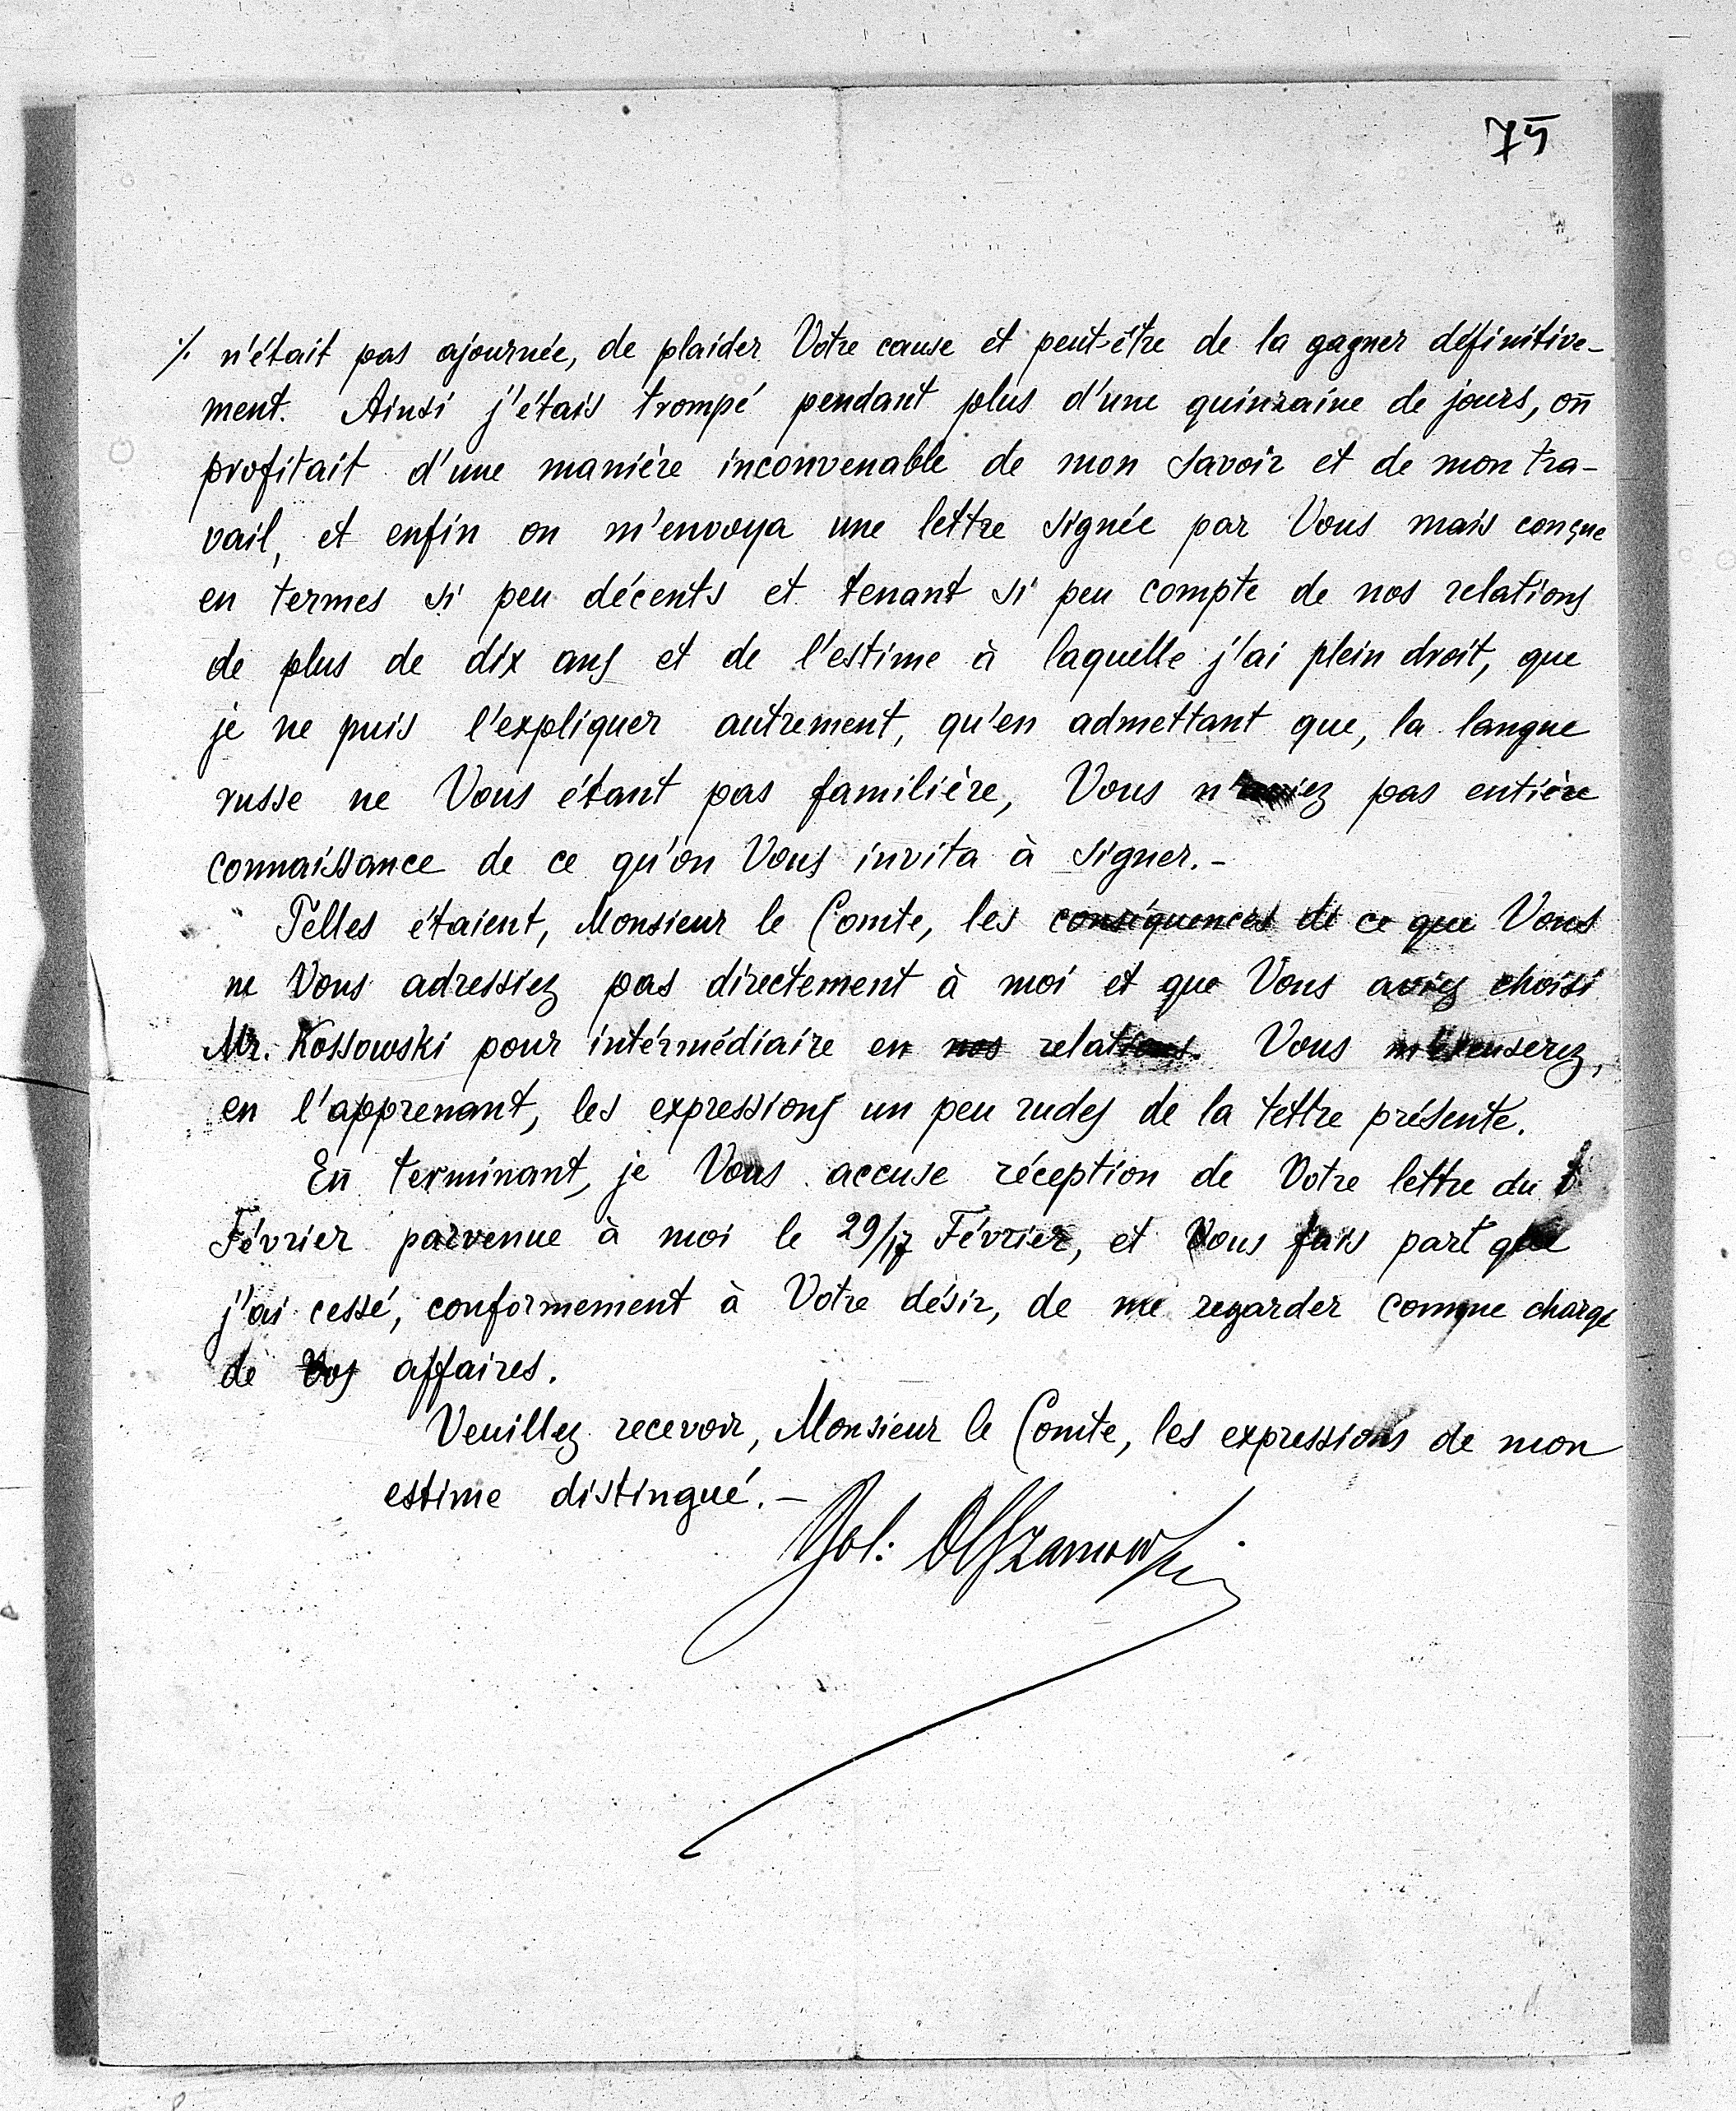 75
./. n'était pas ajournée, de plaider Votre cause et peut-être de la gagner définitive-
ment. Ainsi j'étais trompé pendant plus d'une quinzaine de jours, on
profitait d'une manière inconvenable de mon savoir et de mon tra-
vail, et enfin on m'envoya une lettre signée par Vous mais conçue
en termes si peu décents et tenant si peu compte de nos relations
de plus de dix ans et de l'estime à laquelle j'ai plein droit, que
je ne puis l'expliquer autrement, qu'en admettant que, la langue
russe ne Vous étant pas familière, Vous n'aviez pas entière
connaissance de ce qu'on Vous invita à signer.-
Telles étaient, Monsieur le Comte, les conséquences de ce que Vous
ne Vous adressiez pas directement à moi et que Vous aviez choisi
Mr. Kossowski pour intérmédiaire en nos relations. Vous m'excuserez,
en l'apprenant, les expressions un peu rudes de la lettre présente.
En terminant, je Vous accuse réception de Votre lettre du
Février parvenue à moi le 29/17 Février, et Vous fais part que
j'ai cessé, conformement à Votre désir, de me regarder comme chargé
de Vos affaires.
Veuillez recevoir, Monsieur le Comte, les expressions de mon
estime distingué.-
Olszamowski